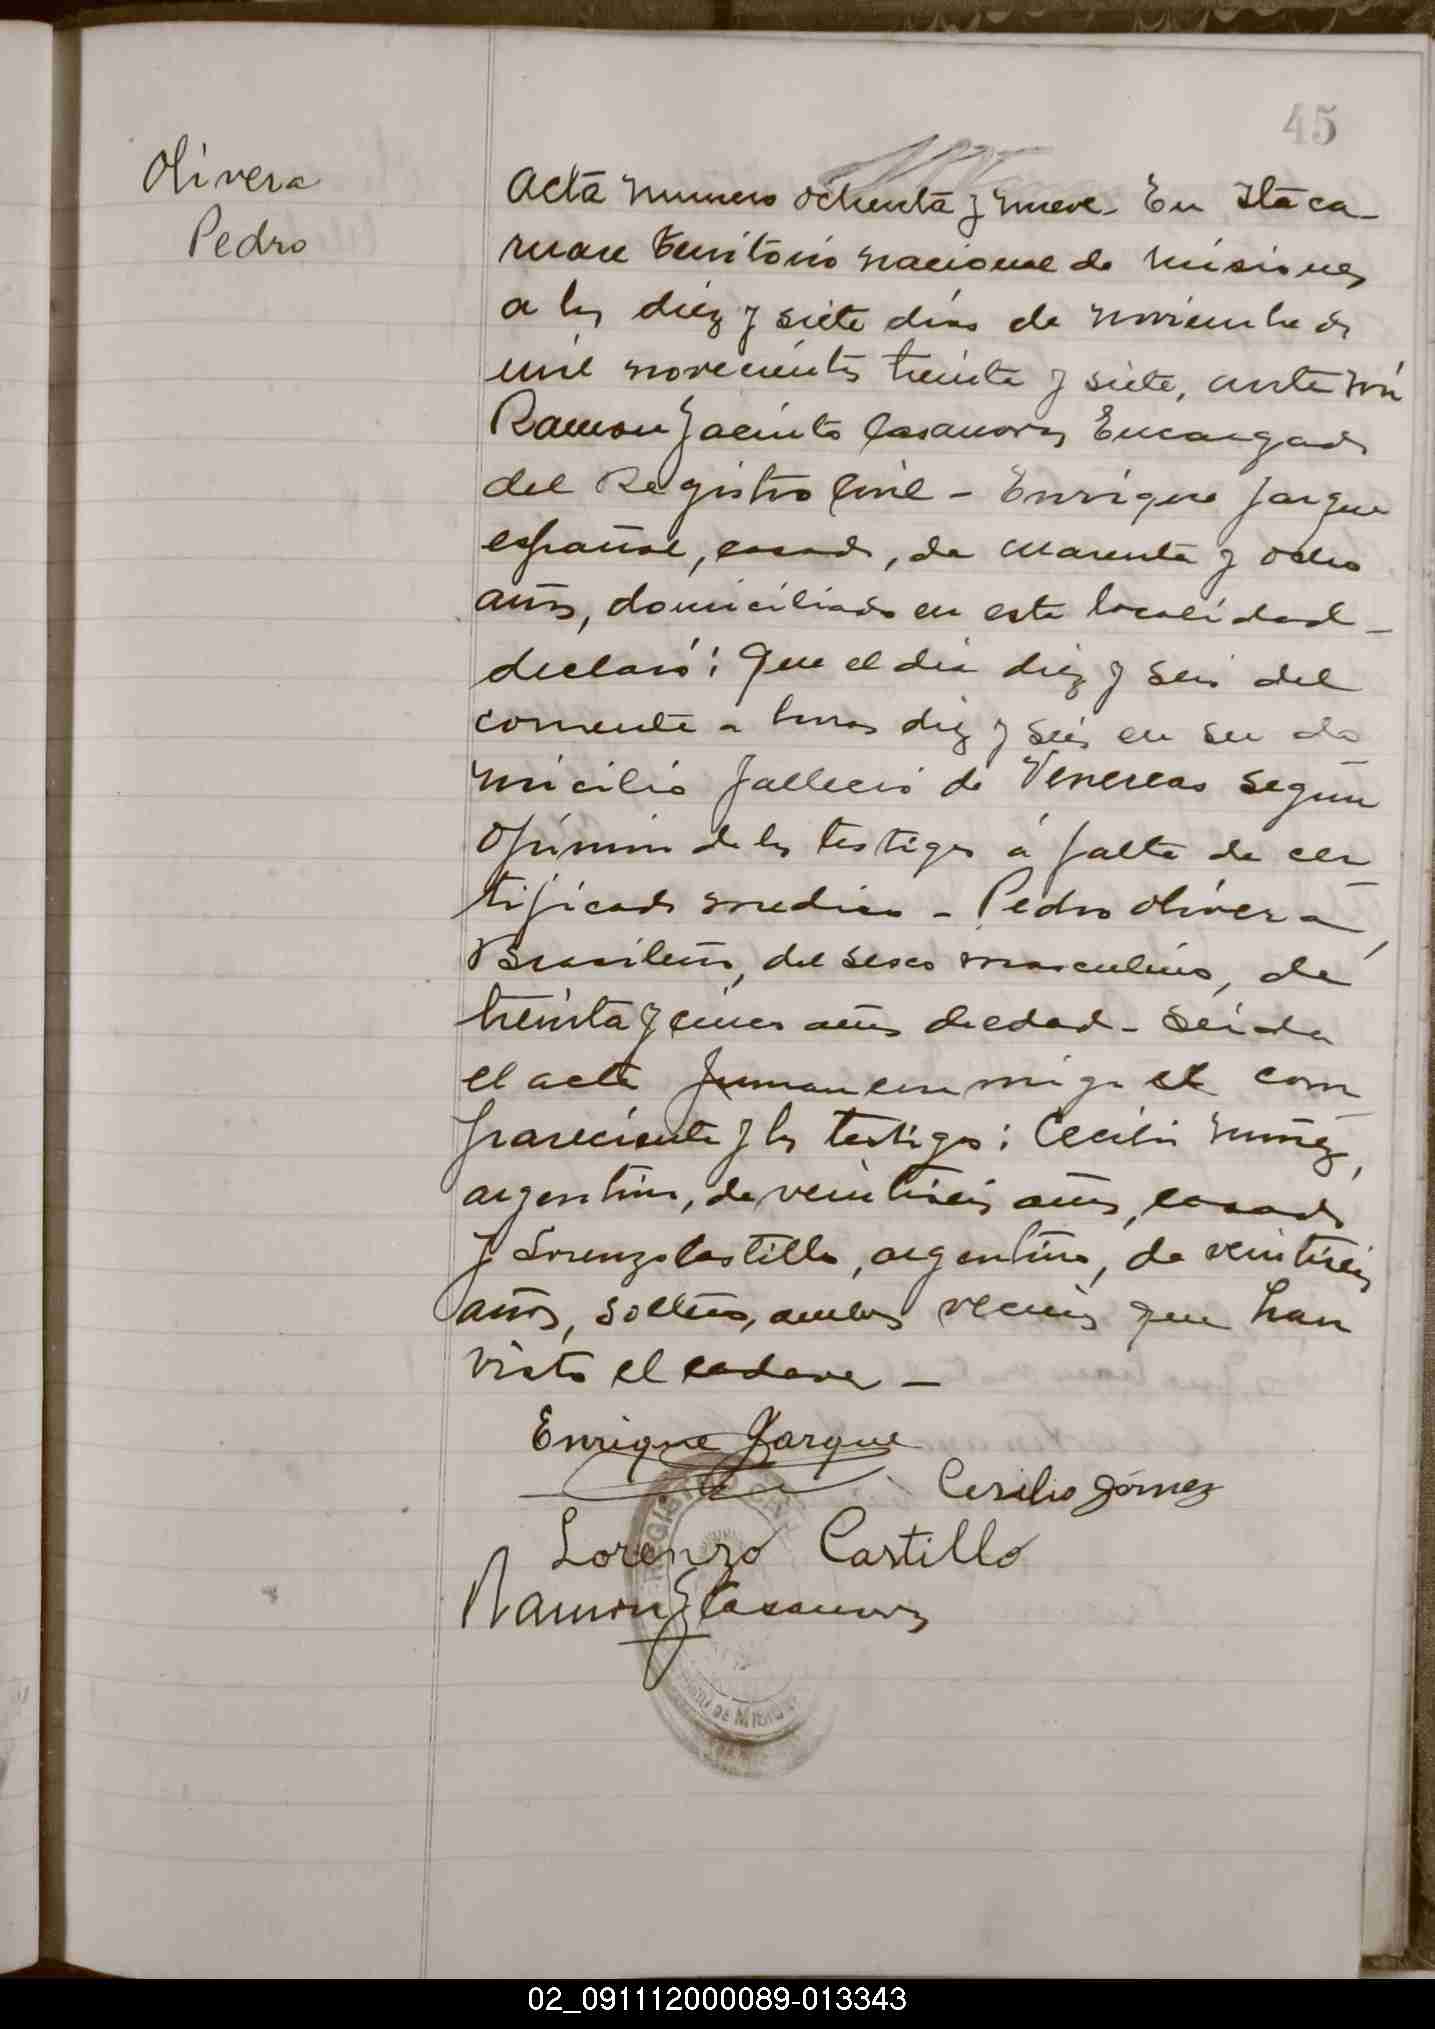 45
Olivera
Pedro
Acta numero ochenta y nueve. En Itaca-
ruare territorio nacional de Misiones
a los diez y siete dias de noviembre de
mil novecientos treinta y siete, ante mi
Ramon Jacinto Casanovas Encargado
del Registro Civil - Enrique Jarque
español, casado, de cuarenta y ocho
años, domiciliado en esta localidad -
declaró: Que el dia diez y seis del
corriente a horas diez y seis en su do
micilio falleció de Venereas según
opinión de los testigos á falta de cer
tificado medico - Pedro Olivera,
Brasileño, del sexo masculino, de
treinta y cinco años de edad - Leida
el acta firman conmigo el com
pareciente y los testigos: Cecilio
argentino, de veintiseis años, casado
y Lorenzo Castillo, argentino, de veintiseis
años, soltero, ambos vecinos que han
visto el cadaver -
Enrique Jarque
Cesilio Gómez
Lorenzo Castillo
Ramon J Casanovas
REGISTRO CIVIL
DE MISIONES
02_091112000089-013343